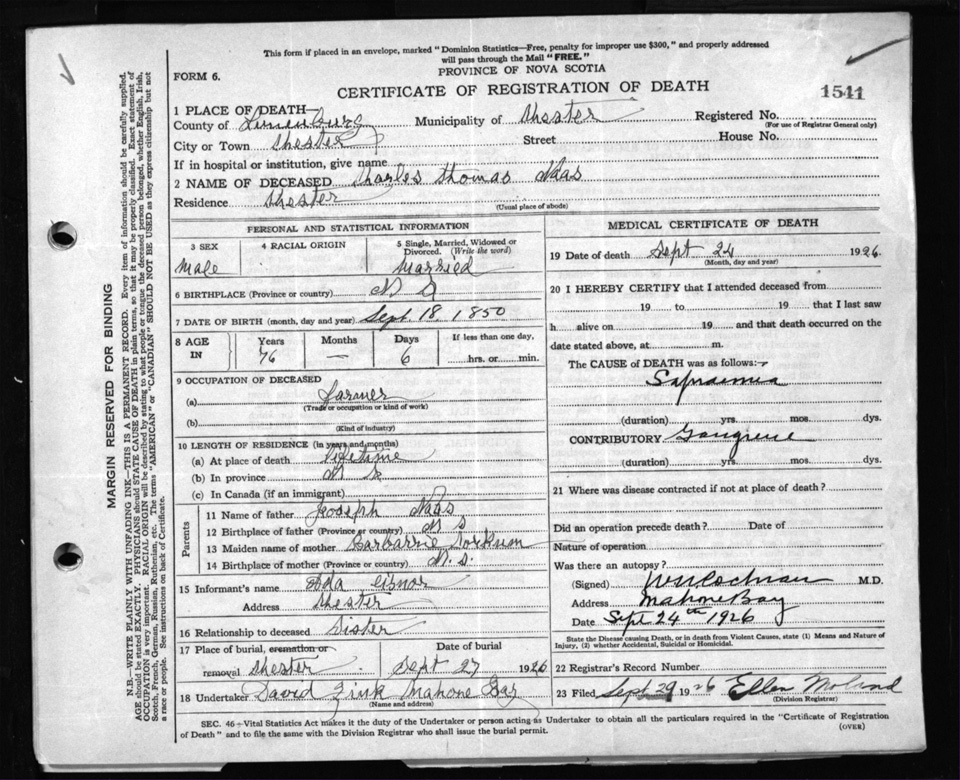 This form if placed in an envelope, marked "Dominion Statistics—Free, penalty for improper use $300," and properly addressed
will pass through the Mail "FREE."
FORM 6.
PROVINCE OF NOVA SCOTIA
CERTIFICATE OF REGISTRATION OF DEATH
1541
1 PLACE OF DEATH—
County of Lunenburg Municipality of Chester Registered No.
(For use of Registrar General only)
City or Town Chester Street House No.
If in hospital or institution, give name
2 NAME OF DECEASED Charles Thomas Naas
Residence Chester
(Usual place of abode)
PERSONAL AND STATISTICAL INFORMATION
3 SEX 4 RACIAL ORIGIN 5 Single, Married, Widowed or Divorced. (Write the word)
Male Married
6 BIRTHPLACE (Province or country) N S
7 DATE OF BIRTH (month, day and year) Sept. 18. 1850
8 AGE IN Years Months Days If less than one day,
76 — 6 hrs. or min.
9 OCCUPATION OF DECEASED
(a) Farmer
(Trade or occupation or kind of work)
(b)
(Kind of industry)
10 LENGTH OF RESIDENCE (in years and months)
(a) At place of death Lifetime
(b) In province
(c) In Canada (if an immigrant)
Parents
11 Name of father Joseph Naas
12 Birthplace of father (Province or country) N S
13 Maiden name of mother
14 Birthplace of mother (Province or country) N. S.
15 Informant's name Ada
Address Chester
16 Relationship to deceased Sister
17 Place of burial, cremation or removal Date of burial
Chester Sept 27 1926
18 Undertaker David Zink Mahone Bay
(Name and address)
MEDICAL CERTIFICATE OF DEATH
19 Date of death Sept 24 1926
(Month, day and year)
20 I HEREBY CERTIFY that I attended deceased from
19 to 19 that I last saw
h alive on 19 and that death occurred on the
date stated above, at m.
The CAUSE of DEATH was as follows:—
Sapraemia
(duration) yrs. mos. dys.
CONTRIBUTORY Gangrene
(duration) yrs. mos. dys.
21 Where was disease contracted if not at place of death?
Did an operation precede death? Date of
Nature of operation
Was there an autopsy?
(Signed) Cochran M.D.
Address Mahone Bay
Date Sept 24th 1926
State the Disease causing Death, or in death from Violent Causes, state (1) Means and Nature of
Injury, (2) whether Accidental, Suicidal or Homicidal.
22 Registrar's Record Number
23 Filed Sept 29 1926 Ellen
(Division Registrar)
SEC. 46—Vital Statistics Act makes it the duty of the Undertaker or person acting as Undertaker to obtain all the particulars required in the "Certificate of Registration
of Death" and to file the same with the Division Registrar who shall issue the burial permit.
(OVER)
MARGIN RESERVED FOR BINDING
N.B.—WRITE PLAINLY WITH UNFADING INK—THIS IS A PERMANENT RECORD. Every item of information should be carefully supplied.
AGE should be stated EXACTLY. PHYSICIANS should STATE CAUSE OF DEATH in plain terms, so that it may be properly classified. Exact statement of
OCCUPATION is very important. RACIAL ORIGIN will be described by stating to what people or tongue the deceased person belonged, whether English, Irish,
Scotch, French, German, Russian, Ruthenian, etc. The terms "AMERICAN" or "CANADIAN" SHOULD NOT BE USED as they express citizenship but not
a race or people. See instructions on back of Certificate.